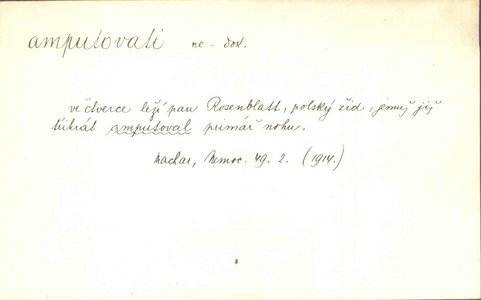 amputovati ne-dok.
ve čtverce leží pan Rosenblatt, polský žid, jemuž již
třikrát amputoval primář nohu.
Maclar, Nemoc. 49. 2. (1914.)